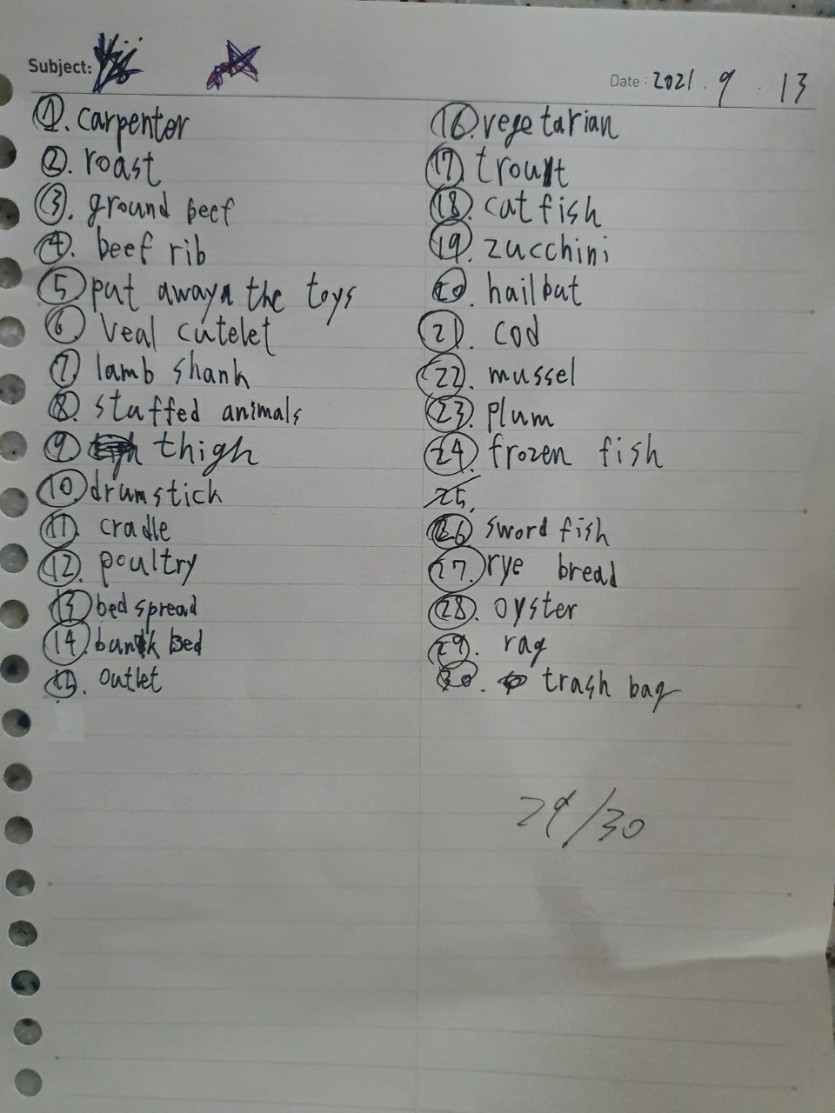 Subject:
Date: 2021. 9. 13
1. carpentor
2. roast
3. ground beef
4. beef rib
5 put away the toys
6 veal cutelet
7 lamb shank
8. stuffed animals
9 thigh
10 drumstick
11. cradle
12. poultry
13 bed spread
14. bunk bed
15. outlet
16. vegetarian
17. trout
18. cat fish
19. zucchini
20. hailbut
21. cod
22. mussel
23. plum
24. frozen fish
25.
26 sword fish
27. rye bread
28. oyster
29. rag
30. trash bag
29/30